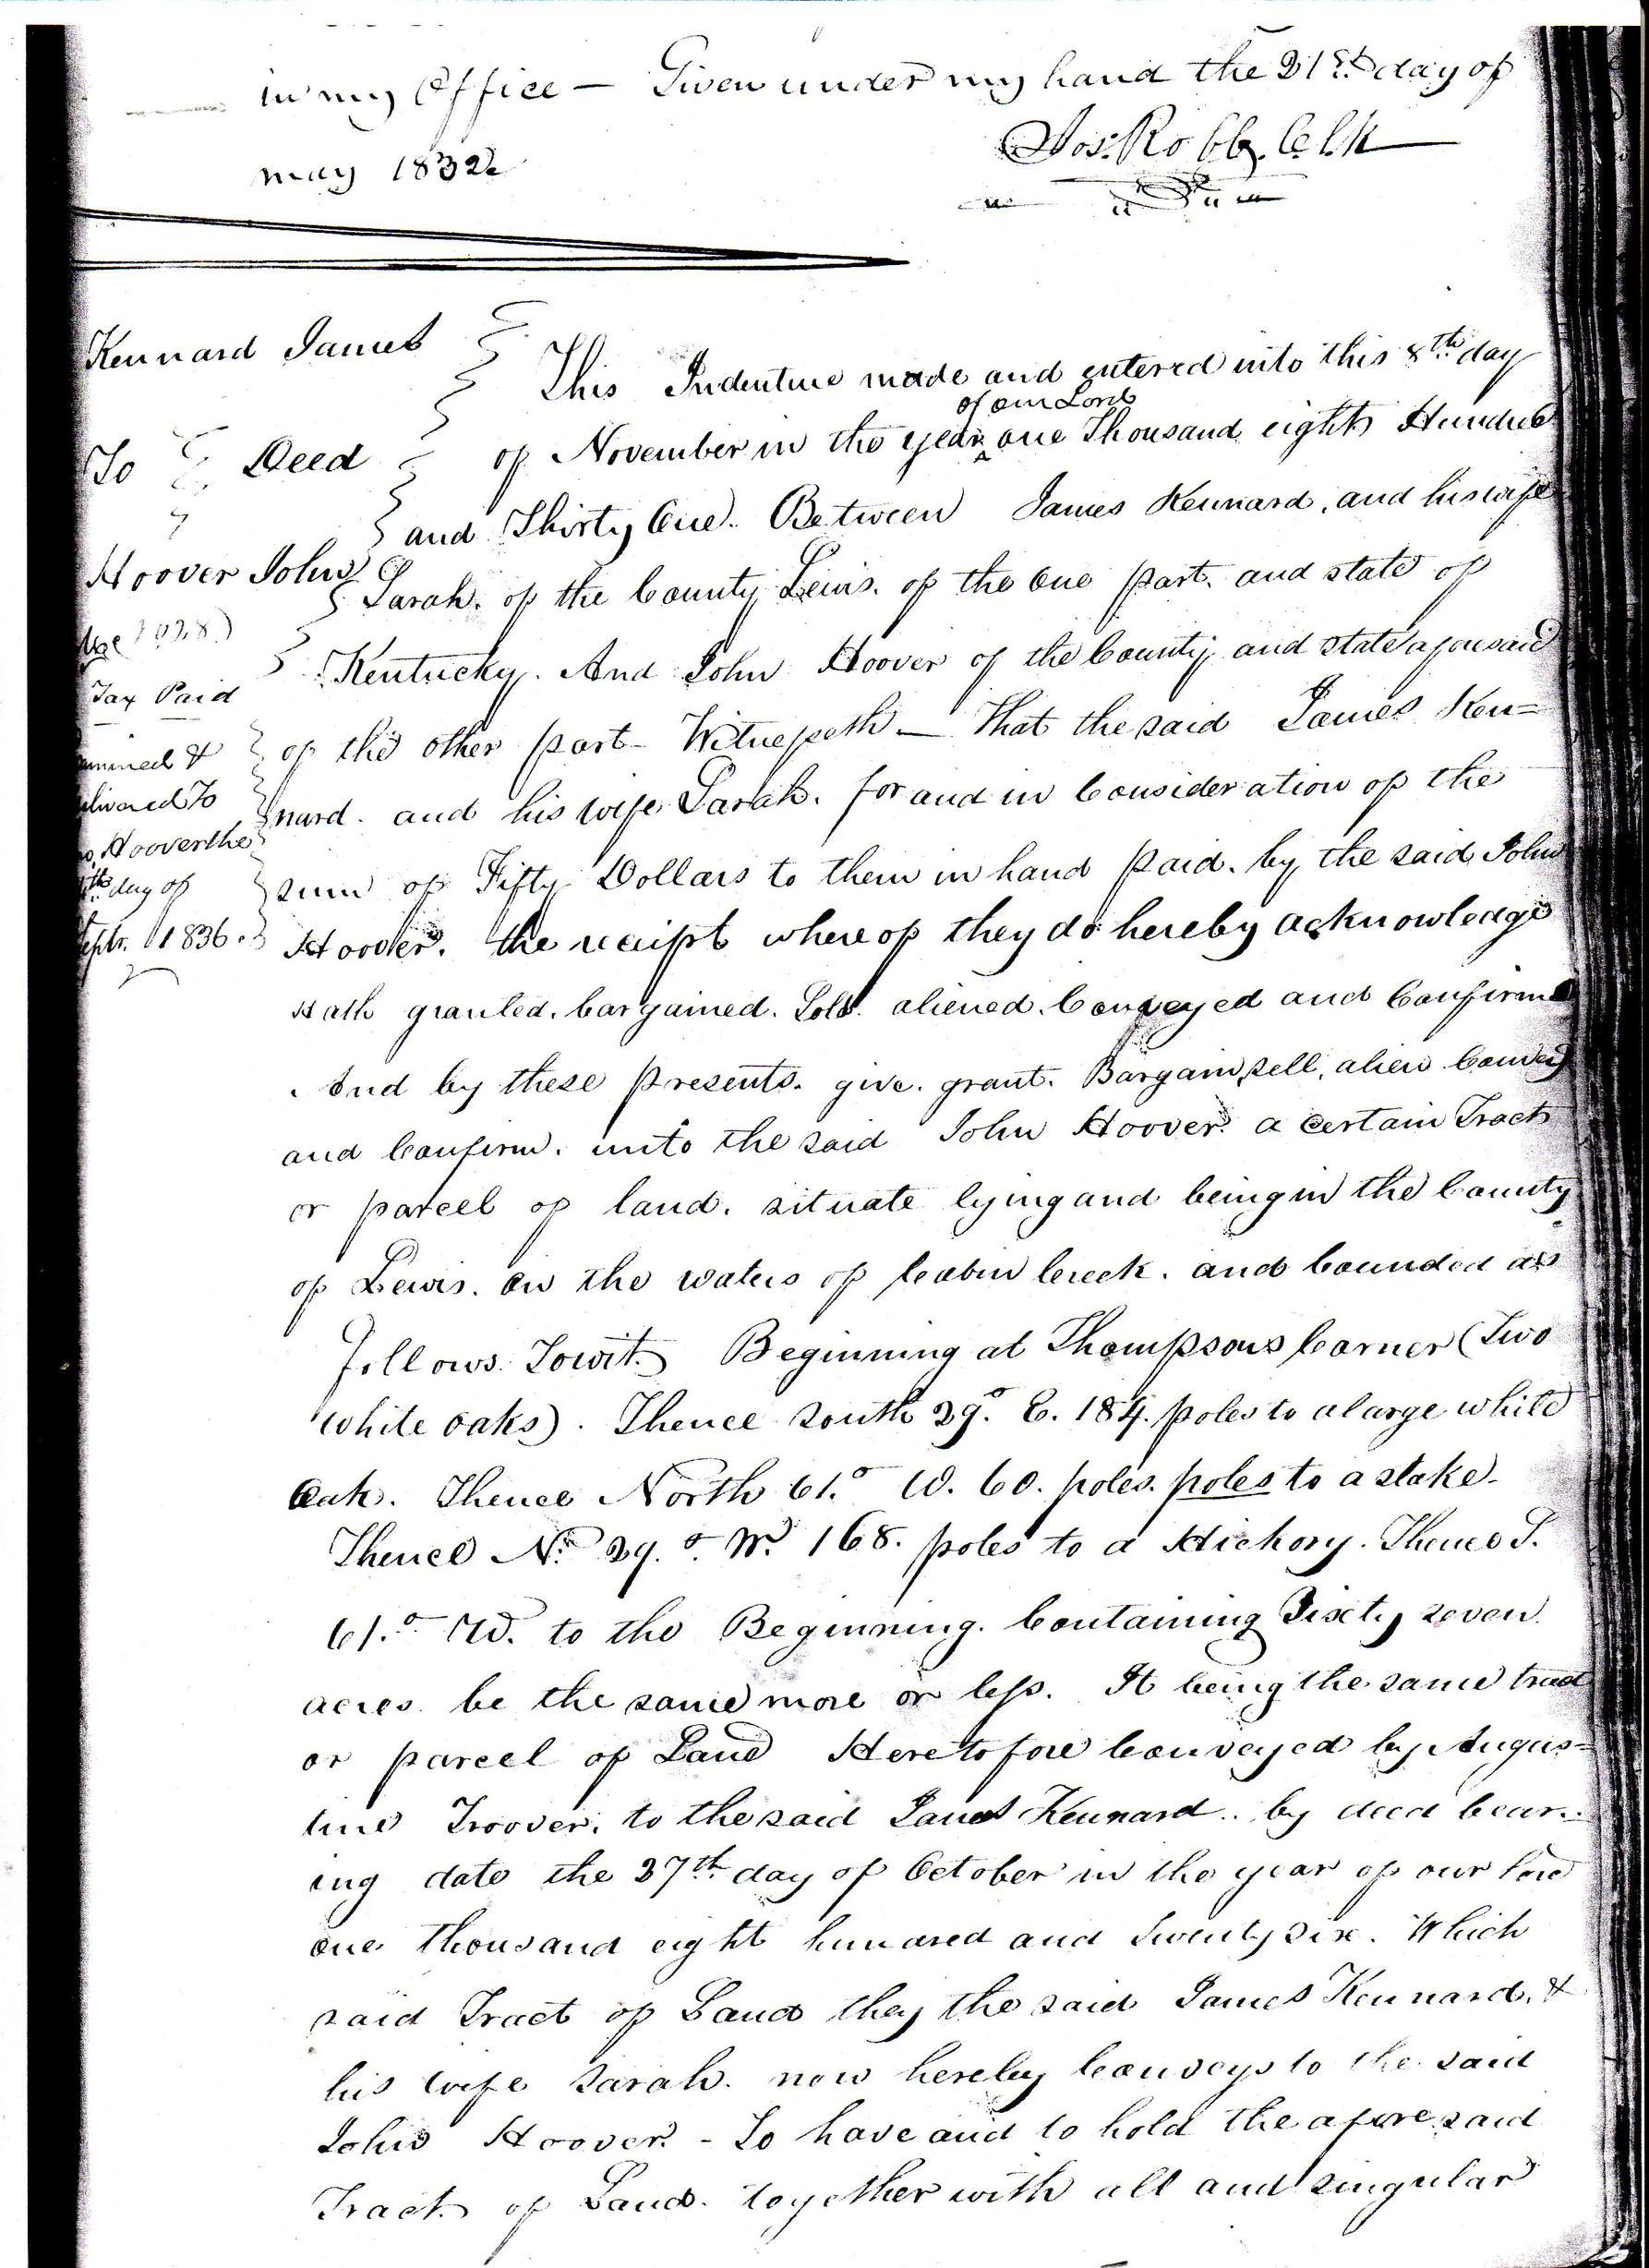 in my Office — Given under my hand the 31st day of
may 1832
Jos. Robb. Clk
Kennard James
To Deed
Hoover John
Tax Paid
mined &
livered To
Hoover the
th day of
Septr. 1836.
This Indenture made and entered into this 8th day
of our Lord
of November in the year ^ one Thousand eight Hundred
and Thirty One. Between James Kennard, and his wife
Sarah. of the County Lewis. of the One part. and state of
Kentucky. And John Hoover of the County and state aforesaid
of the other part - Witnesseth — That the said James Ken=
nard. and his wife Sarah. for and in Consideration of the
sum of Fifty Dollars to them in hand paid. by the said John
Hoover. the receipt whereof they do hereby acknowledge
Hath granted. bargained. Sold. aliened. Conveyed and Confirmed
. And by these presents. give. grant. Bargain, sell, alien Convey
and Confirm. unto the said John Hoover. a certain Tract
or parcel of land. situate lying and being in the County
of Lewis. on the waters of Cabin Creek. and bounded as
follows. Towit. Beginning at Thompsons Corner (Two
white oaks). Thence south 29.° E. 184. poles to a large white
Oak. Thence North 61.° W. 60. poles. poles to a stake.
Thence N. 29.° W. 168. poles to a Hickory. Thence S.
61.° W. to the Beginning. Containing Sixty seven
acres. be the same more or less. It being the same tract
or parcel of Land Heretofore Conveyed by Augus=
tine Troover. to the said James Kennard.. by deed bear.=
ing date the 27th day of October in the year of our Lord
one thousand eight hundred and twenty six. Which
said Tract of Land they the said James Kennard. &
his wife Sarah. now hereby Conveys to the said
John Hoover. - To have and to hold the aforesaid
Tract. of Land. together with all and singular